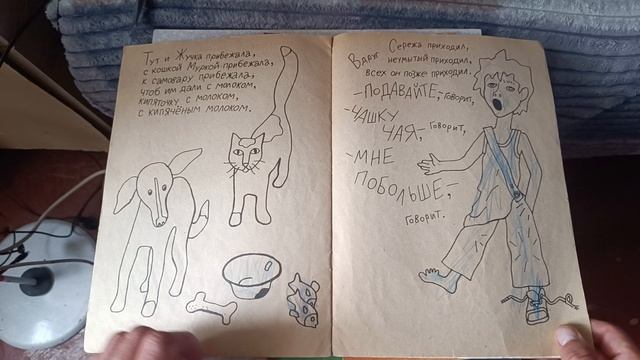 Тут и Жучка прибежала,
с кошкой Муркой прибежала,
к самовару прибежала,
чтоб им дали с молоком,
кипяточку с молоком,
с кипячёным молоком.
Вдруг Сережа приходил,
неумытый приходил,
всех он позже приходил.
-ПОДАВАЙТЕ,- говорит,
-ЧАШКУ
ЧАЯ,- говорит,
-МНЕ
ПОБОЛЬШЕ,-
говорит.